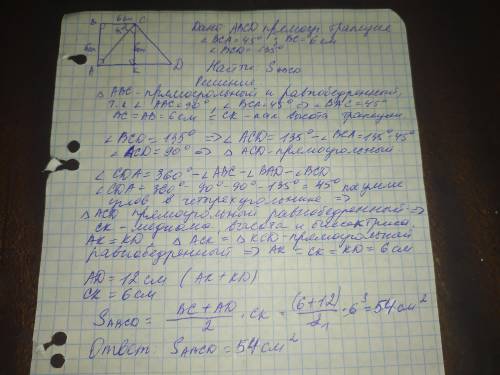 B 6см C
45°
6см
6см
A K D
Дано ABCD прямоуг. трапеция
∠BCA=45°; BC=6см
∠BCD=135°
Найти SABCD
Решение
△ABC-прямоугольный и равнобедренный,
т.к ∠ABC=90°, ∠BCA=45° ⇒ ∠BAC=45°
BC=AB=6см = CK - как высота трапеции
∠BCD=135° ⇒ ∠ACD=135°-∠BCA=135°-45°
∠ACD=90° ⇒ △ACD-прямоугольный
∠CDA=360°-∠ABC-∠BAD-∠BCD
∠CDA=360°-90°-90°-135°=45° по сумме
углов в четырехугольнике ⇒
△ACD прямоугольный равнобедренный ⇒
CK - медиана, высота и биссектриса
AK=KD, △ACK=△KCD-прямоугольный
равнобедренный ⇒ AK=CK=KD=6см
AD=12см (AK+KD)
CK=6см
SABCD= BC+AD/2 · CK = (6+12)/2 1 · 6 3 = 54см²
Ответ: SABCD=54см²